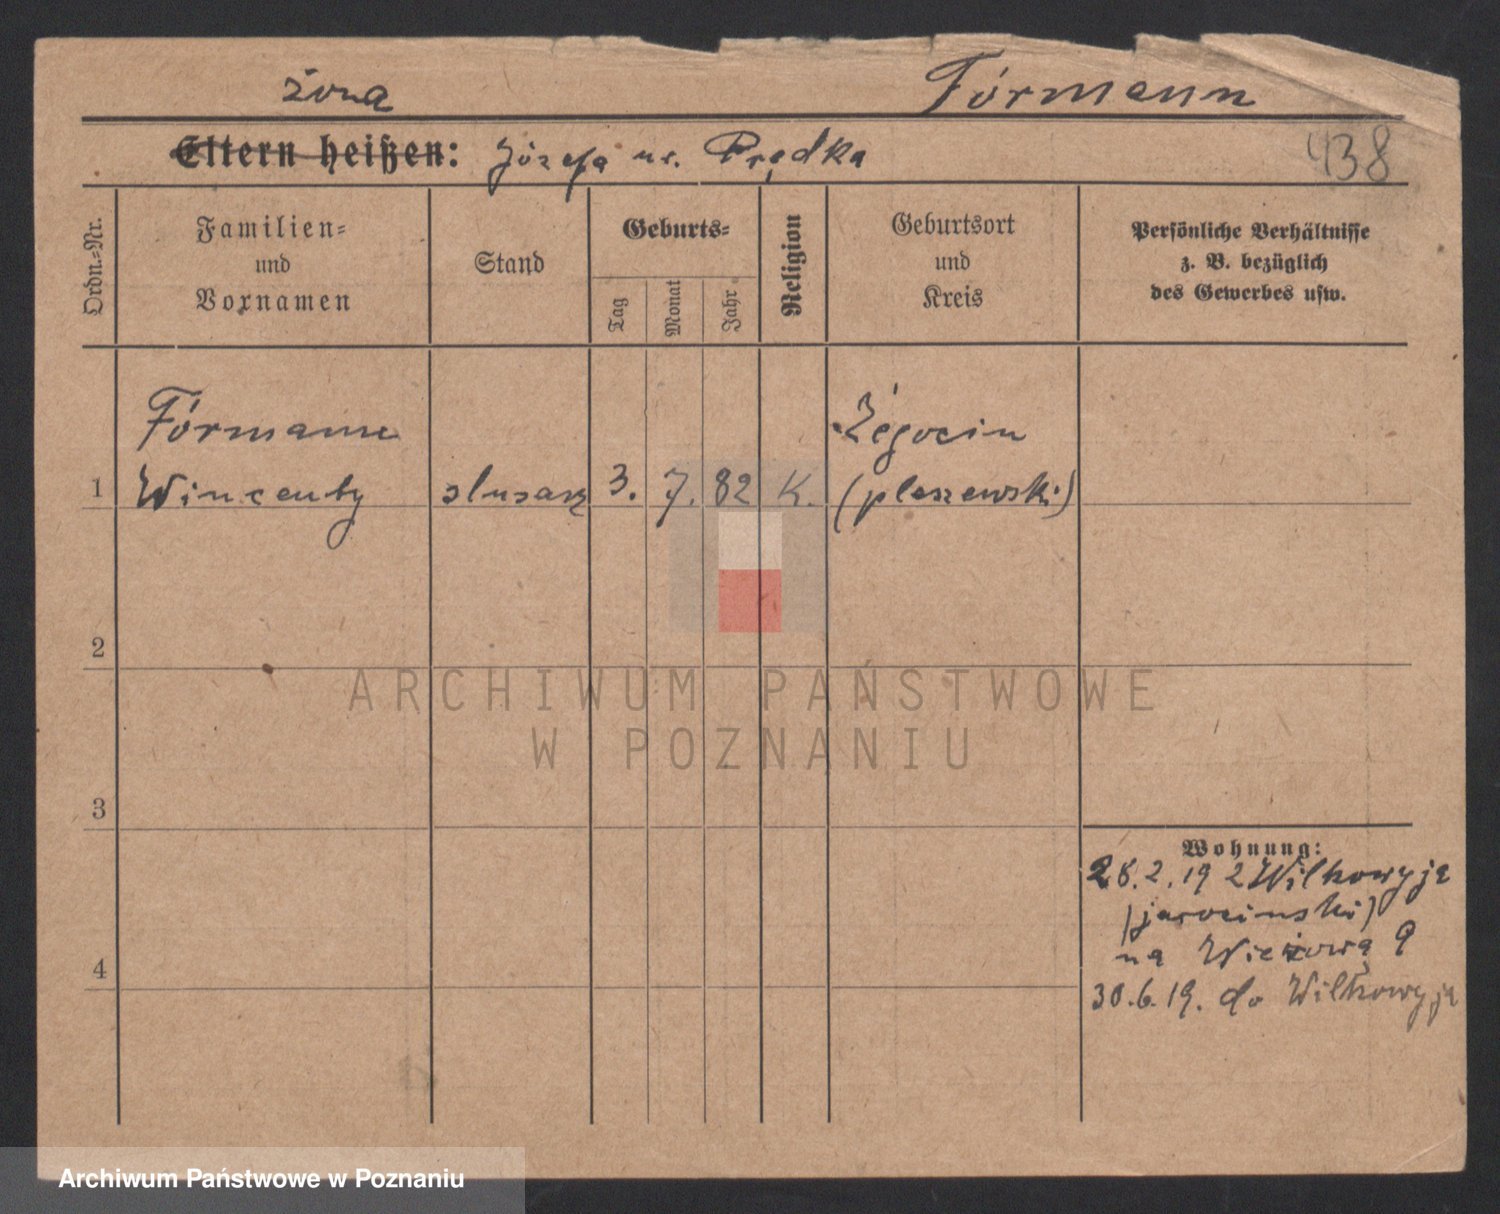 żona Fórmann
Eltern heißen: Józefa ur. Prędka
438
Ordn.-Nr.
Familien-
und
Vornamen
Stand
Geburts-
Tag
Monat
Jahr
Religion
Geburtsort
und
Kreis
Persönliche Verhältnisse
z. B. bezüglich
des Gewerbes usw.
Fórmann Żegocin
1 Wincenty slusarz 3. 7. 82 K. (pleszewski)
2
3
4
Wohnung:
28.2.19 z Wilkowyja
(jarocinski)
na Wieżową 9
30.6.19. do Wilkowyja
ARCHIWUM PAŃSTWOWE
W POZNANIU
Archiwum Państwowe w Poznaniu